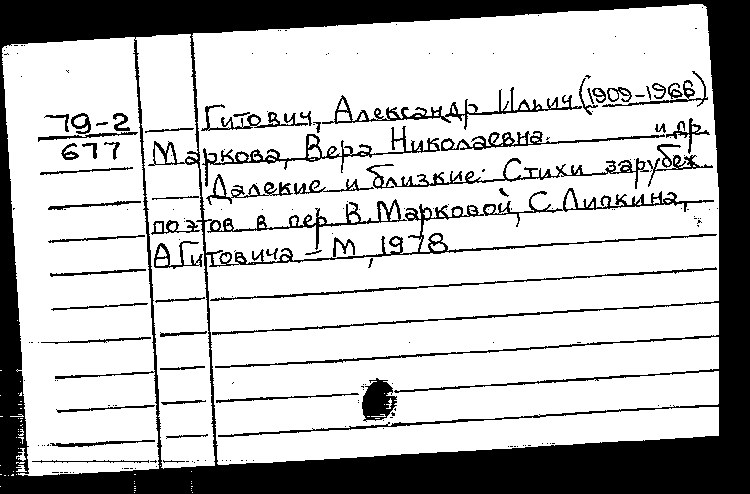 79-2 Гитович, Александр Ильич (1909-1966)
677 Маркова, Вера Николаевна. и др.
Далекие и близкие: Стихи зарубеж.
поэтов в пер. В. Марковой, С. Липкина,
А. Гитовича – М, 1978